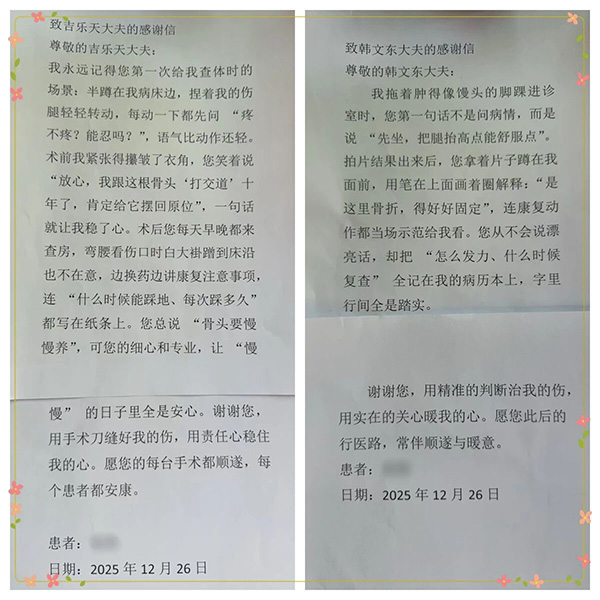 致吉乐天大夫的感谢信
尊敬的吉乐天大夫：
我永远记得您第一次给我查体时的
场景：半蹲在我病床边，捏着我的伤
腿轻轻转动，每动一下都先问 “疼
不疼？能忍吗？”，语气比动作还轻。
术前我紧张得攥皱了衣角，您笑着说
“放心，我跟这根骨头‘打交道’十
年了，肯定给它摆回原位”，一句话
就让我稳了心。术后您每天早晚都来
查房，弯腰看伤口时白大褂蹭到床沿
也不在意，边换药边讲康复注意事项，
连 “什么时候能踩地、每次踩多久”
都写在纸条上。您总说 “骨头要慢
慢养”，可您的细心和专业，让 “慢
慢” 的日子里全是安心。谢谢您，
用手术刀缝好我的伤，用责任心稳住
我的心。愿您的每台手术都顺遂，每
个患者都安康。
患者：
日期：2025 年 12 月 26 日
致韩文东大夫的感谢信
尊敬的韩文东大夫：
我拖着肿得像馒头的脚踝进诊
室时，您第一句话不是问病情，而是
说 “先坐，把腿抬高点能舒服点”。
拍片结果出来后，您拿着片子蹲在我
面前，用笔在上面画着圈解释：“是
这里骨折，得好好固定”，连康复动
作都当场示范给我看。您从不会说漂
亮话，却把 “怎么发力、什么时候
复查” 全记在我的病历本上，字里
行间全是踏实。
谢谢您，用精准的判断治我的伤，
用实在的关心暖我的心。愿您此后的
行医路，常伴顺遂与暖意。
患者：
日期：2025 年 12 月 26 日